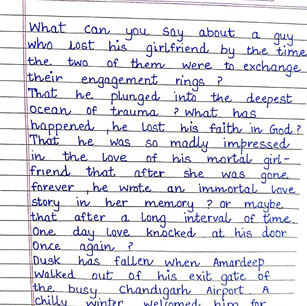 What can you say about a guy
who lost his girlfriend by the time
the two of them were to exchange
their engagement rings ?
That he plunged into the deepest
ocean of trauma ? What has
happened , he lost his faith in God ?
That he was so madly impressed
in the love of his mortal girl-
friend that after she was gone
forever , he wrote an immortal love
story in her memory ? Or maybe
that after a long interval of time
One day love knocked at his door
Once again ?
Dusk has fallen when Amardeep
walked out of his exit gate of
the busy Chandigarh Airport . A
chilly winter welcomed him for